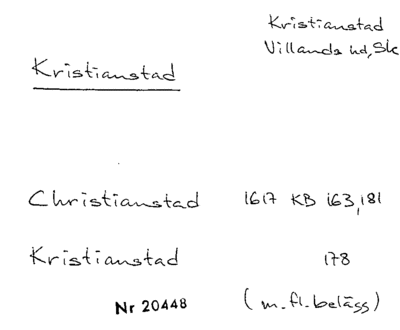 Kristianstad
Villands hd, Sk
Kristianstad
Christianstad 1617 KB 163, 181
Kristianstad 178
Nr 20448 (m. fl. belägg)